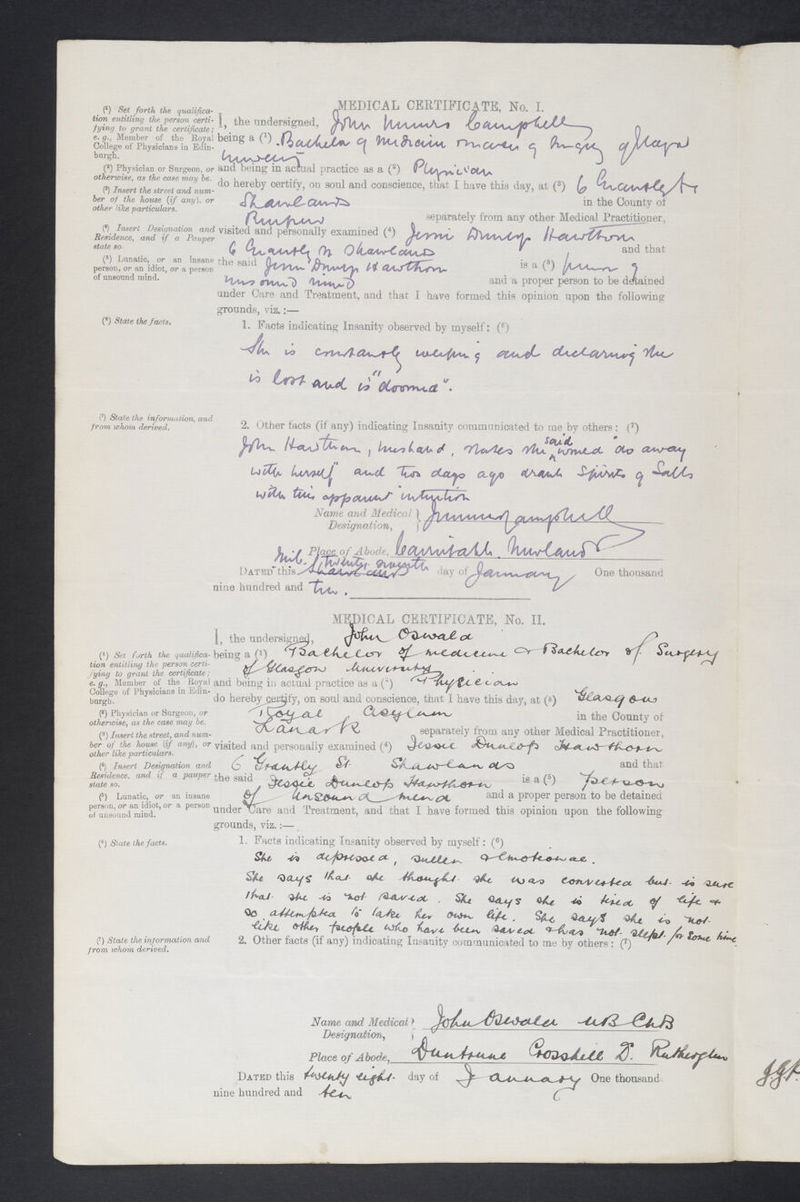 MEDICAL CERTIFICATE, No. I.
(¹) Set forth the qualifica-
tion entitling the person certi-
fying to grant the certificate;
e. g., Member of the Royal
College of Physicians in Edin-
burgh.
(²) Physician or Surgeon, or
otherwise, as the case may be.
(³) Insert the street and num-
ber of the house (if any), or
other like particulars.
(⁴) Insert Designation and
Residence, and if a Pauper
state so.
(⁵) Lunatic, or an insane
person, or an idiot, or a person
of unsound mind.
(⁶) State the facts.
(⁷) State the information, and
from whom derived.
I, the undersigned, John Campbell
being a (¹) Bachelor of Medicine
and being in actual practice as a (²) Physician
do hereby certify, on soul and conscience, that I have this day, at (³) 6 Grantley St
Shawlands in the County of
Renfrew separately from any other Medical Practitioner,
visited and personally examined (⁴) Jessie Dunlop Hawthorn
6 Grantley St Shawlands and that
the said Jessie Dunlop Hawthorn is a (⁵) person of
unsound mind and a proper person to be detained
under Care and Treatment, and that I have formed this opinion upon the following
grounds, viz.:—
1. Facts indicating Insanity observed by myself: (⁶)
She is constantly weeping and declaring she
is lost and is "doomed".
2. Other facts (if any) indicating Insanity communicated to me by others: (⁷)
John Hawthorn, husband, states she said would do away
with herself and two days ago drank Spirits of Salts
with this apparent intention
Name and Medical
Designation, Campbell
Place of Abode, Newlands
DATED this twenty seventh day of January One thousand
nine hundred and ten.
MEDICAL CERTIFICATE, No. II.
(¹) Set forth the qualifica-
tion entitling the person certi-
fying to grant the certificate;
e. g., Member of the Royal
College of Physicians in Edin-
burgh.
(²) Physician or Surgeon, or
otherwise, as the case may be.
(³) Insert the street, and num-
ber of the house (if any), or
other like particulars.
(⁴) Insert Designation and
Residence, and if a pauper
state so.
(⁵) Lunatic, or an insane
person, or an idiot, or a person
of unsound mind.
(⁶) State the facts.
(⁷) State the information and
from whom derived.
I, the undersigned, John Oswald
being a (¹) Bachelor of medicine & Bachelor of Surgery
of Glasgow University
and being in actual practice as a (²) Physician
do hereby certify, on soul and conscience, that I have this day, at (³) Glasgow
Royal Asylum in the County of
Lanark separately from any other Medical Practitioner,
visited and personally examined (⁴) Jessie Dunlop Hawthorn
6 Grantley St Shawlands and that
the said Jessie Dunlop Hawthorn is a (⁵) person
of unsound mind and a proper person to be detained
under Care and Treatment, and that I have formed this opinion upon the following
grounds, viz.:—
1. Facts indicating Insanity observed by myself: (⁶)
She is depressed, sullen & emotional.
She says that she thought she was converted but is sure
that she is not saved. She says she is tired of life &
so attempted to take her own life. She says she is not
like other people who have been saved & has not slept for some time
2. Other facts (if any) indicating Insanity communicated to me by others: (⁷)
Name and Medical
Designation, John Oswald MB ChB
Place of Abode, Duntrune Crosshill Rutherglen
DATED this twenty eight day of January One thousand
nine hundred and ten